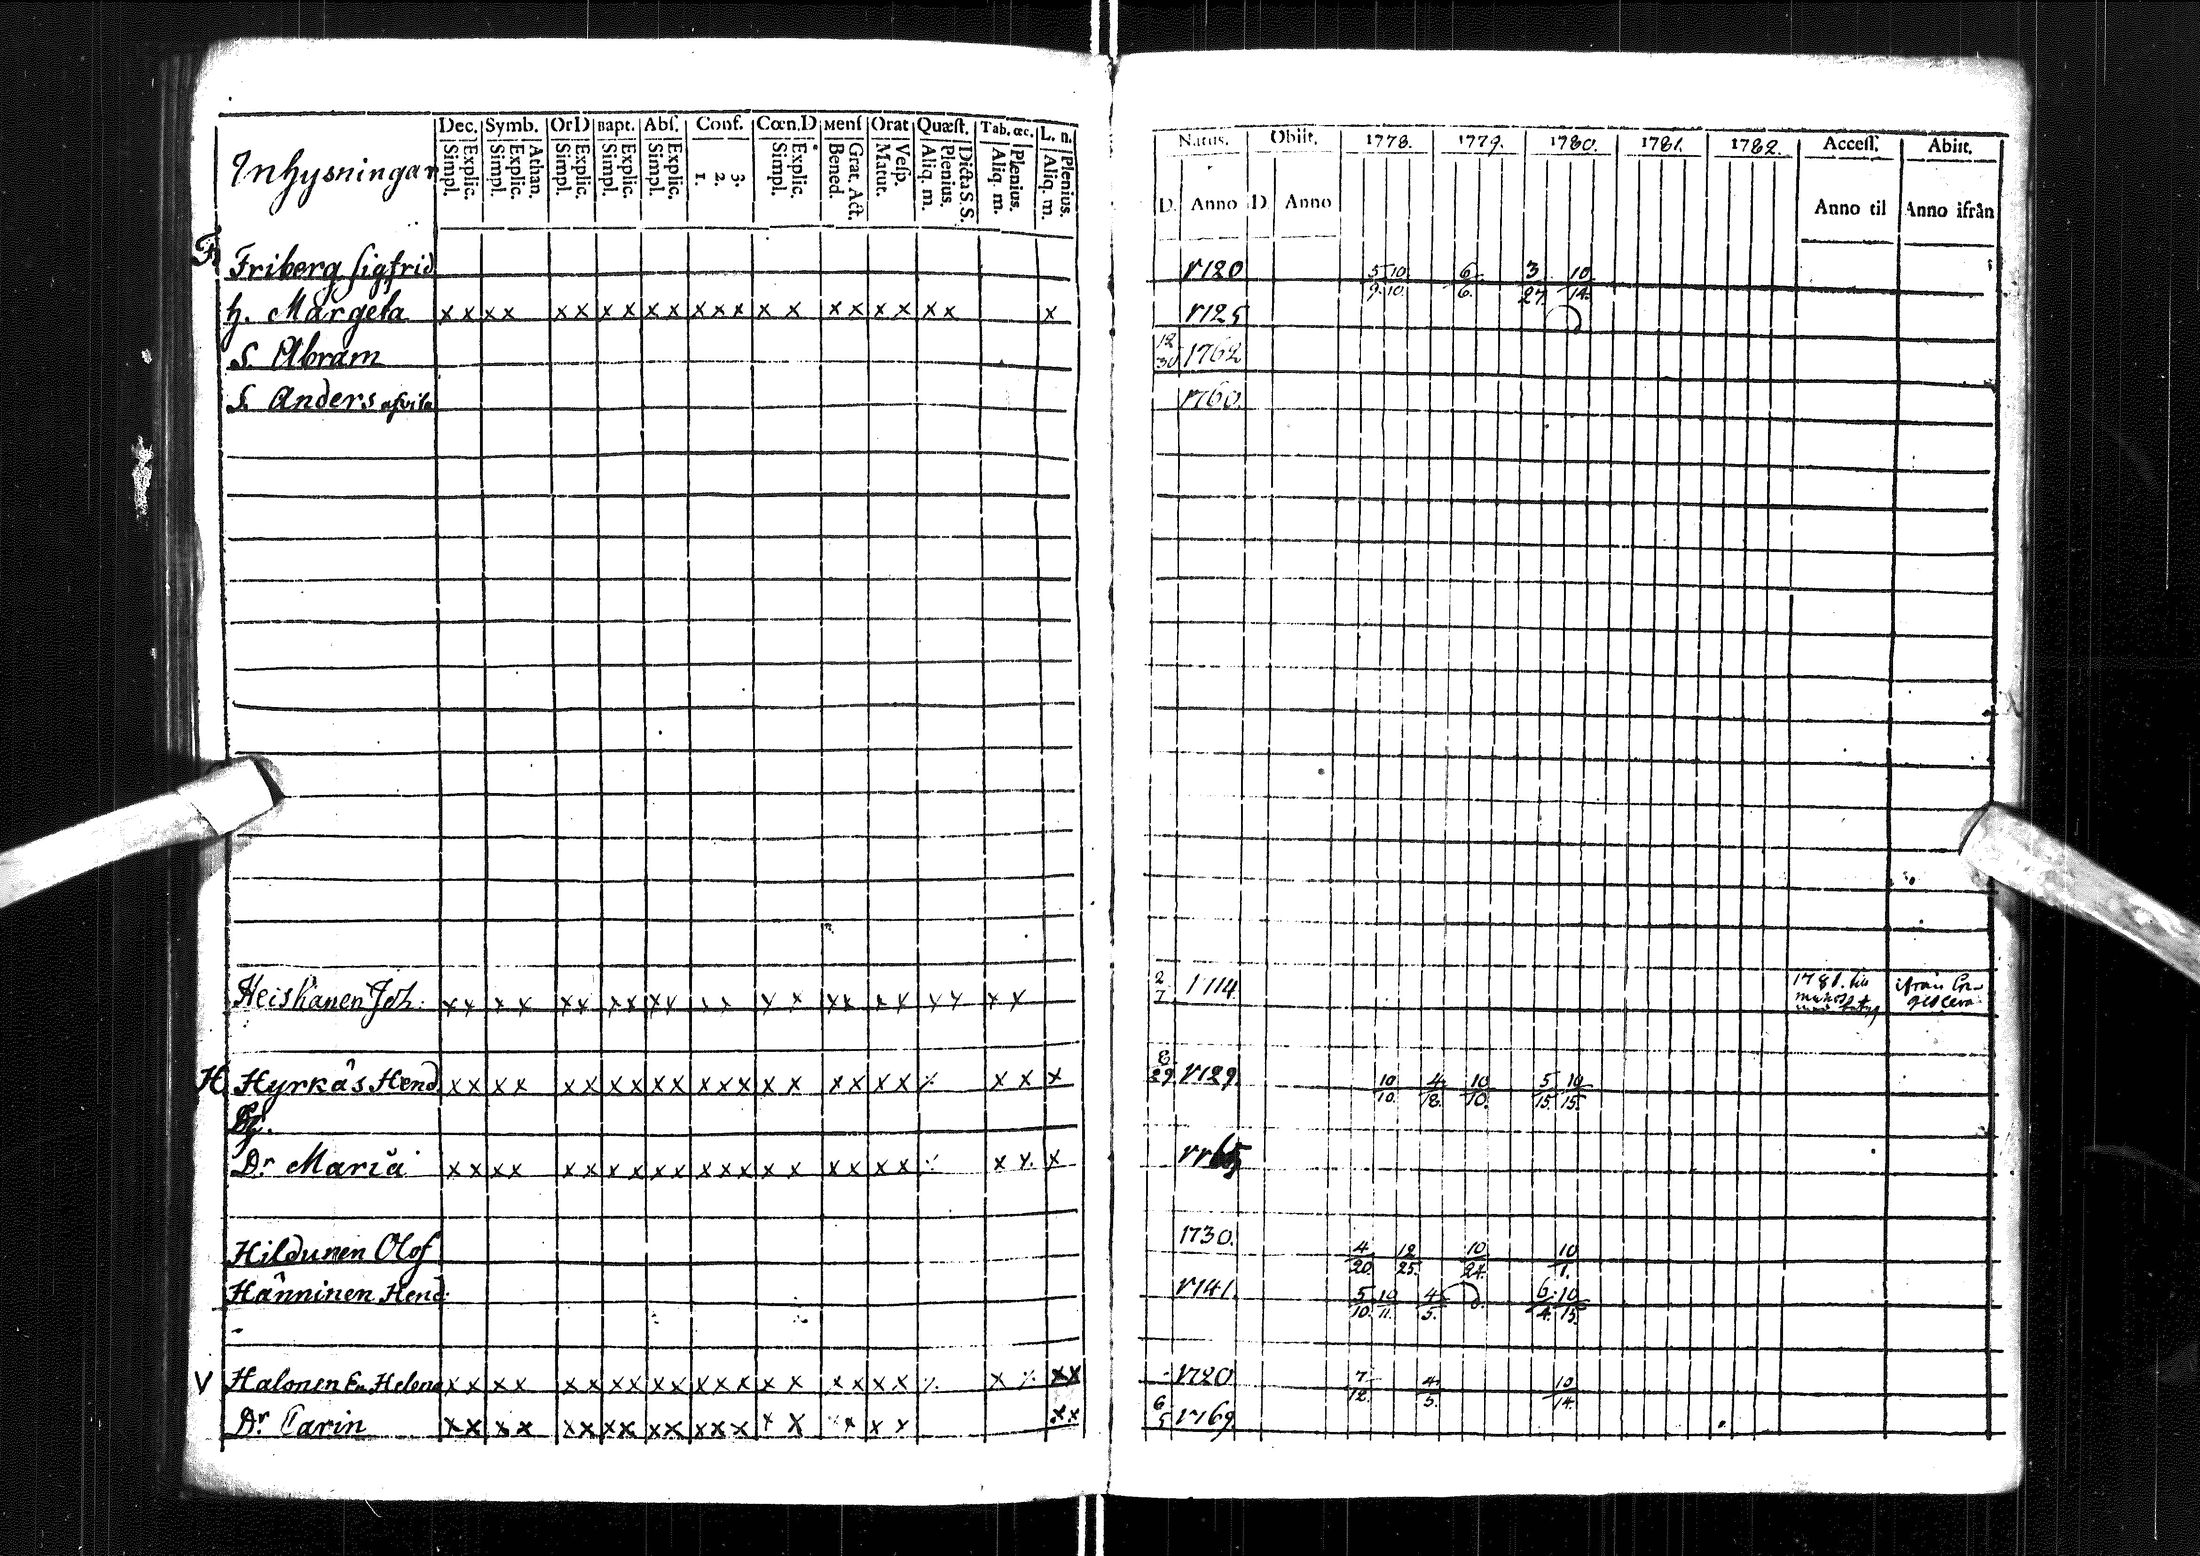 Inhysningar
Dec. Symb. Or D Bapt. Abs. Conf. Cœn. D Mens Orat Quæst. Tab. œc. L. n.
Simpl. Explic. Simpl. Explic. Athan. Simpl. Explic. Simpl. Explic. Simpl. Explic. 1. 2. 3. Simpl. Explic. Bened. Grat. Act. Matut. Vesp. Aliq. m. Plenius. Dicta S. S. Aliq. m. Plenius. Aliq. m. Plenius.
F
Friberg Sigfrid
h. Margeta x x x x x x x x x x x x x x x x x x x x x x
S. Abram
S. Anders
Heiskanen Joh: x x x x x x x x x x x x x x x x x x x x x x
H Hyrkäs Hend. x x x x x x x x x x x x x x x x x x x x x x x
Dr Maria x x x x x x x x x x x x x x x x x x x x x x x
Hildunen Olof
Hänninen Hend:
V Halonen En Helena x x x x x x x x x x x x x x x x x x x x x x
Dr Carin x x x x x x x x x x x x x x x x x x x x x
Natus. Obiit. 1778. 1779. 1780. 1781. 1782. Access. Abiit.
D. Anno D. Anno Anno til Anno ifrån
1720 5/9 10/10 6/6. 3/27 10/14.
1725
12/30 1762
1760.
2/7 1714 1781. ifrån
8/29 1729. 10/10 4/18. 10/10. 5/15 10/15.
1765
1730. 4/20. 12/25. 10/24. 10/1.
1741. 5/10. 10/11. 4/5. 6/4. 10/15.
1720 7/12. 4/5. 10/14.
6/5 1769.